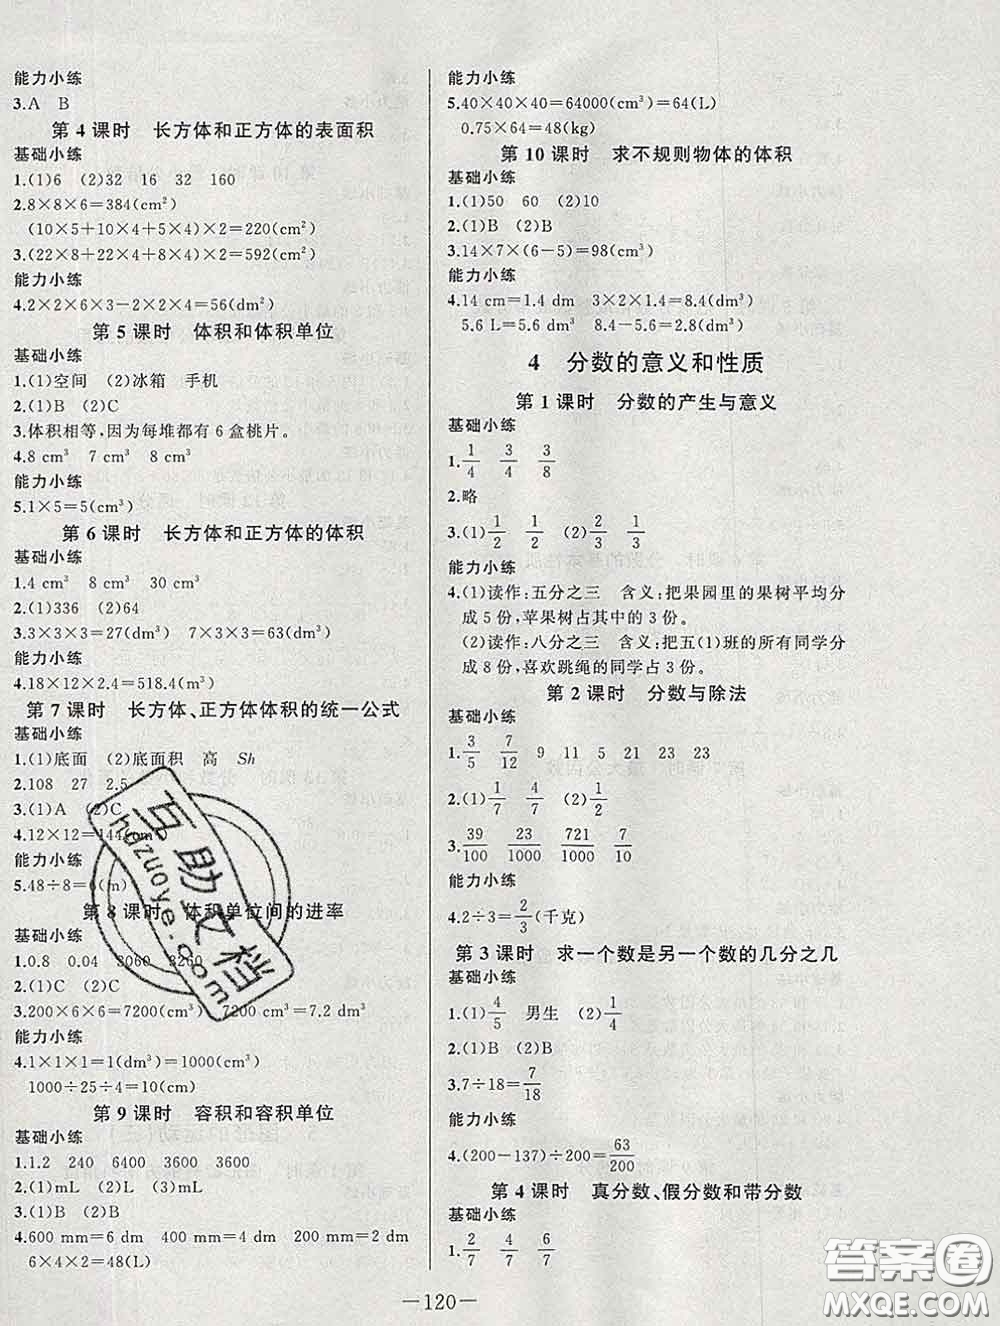 能力小练
3.A B
第 4 课时 长方体和正方体的表面积
基础小练
1.(1)6 (2)32 16 32 160
2.8×8×6=384(cm²)
(10×5+10×4+5×4)×2=220(cm²)
3.(22×8+22×4+8×4)×2=592(cm²)
能力小练
4.2×2×6×3-2×2×4=56(dm²)
第 5 课时 体积和体积单位
基础小练
1.(1)空间 (2)冰箱 手机
2.(1)B (2)C
3.体积相等,因为每堆都有 6 盒桃片。
4.8 cm³ 7 cm³ 8 cm³
能力小练
5.1×5=5(cm³)
第 6 课时 长方体和正方体的体积
基础小练
1.4 cm³ 8 cm³ 30 cm³
2.(1)336 (2)64
3.3×3×3=27(dm³) 7×3×3=63(dm³)
能力小练
4.18×12×2.4=518.4(m³)
第 7 课时 长方体、正方体体积的统一公式
基础小练
1.(1)底面 (2)底面积 高 Sh
2.108 27 2.5
3.(1)A (2)C
4.12×12=144(cm²)
能力小练
5.48÷8=6(m)
第 8 课时 体积单位间的进率
基础小练
1.0.8 0.04 3060 3260
2.(1)C (2)C
3.200×6×6=7200(cm³) 7200 cm³=7.2 dm³
能力小练
4.1×1×1=1(dm³)=1000(cm³)
1000÷25÷4=10(cm)
第 9 课时 容积和容积单位
基础小练
1.1.2 240 6400 3600 3600
2.(1)mL (2)L (3)mL
3.(1)B (2)B
4.600 mm=6 dm 400 mm=4 dm 200 mm=2 dm
6×4×2=48(L)
能力小练
5.40×40×40=64000(cm³)=64(L)
0.75×64=48(kg)
第 10 课时 求不规则物体的体积
基础小练
1.(1)50 60 (2)10
2.(1)B (2)B
3.14×7×(6-5)=98(cm³)
能力小练
4.14 cm=1.4 dm 3×2×1.4=8.4(dm³)
5.6 L=5.6 dm³ 8.4-5.6=2.8(dm³)
4 分数的意义和性质
第 1 课时 分数的产生与意义
基础小练
1.1/4 3/4 3/8
2.略
3.(1)1/2 1/2 (2)2/3 1/3
能力小练
4.(1)读作:五分之三 含义:把果园里的果树平均分
成 5 份,苹果树占其中的 3 份。
(2)读作:八分之三 含义:把五(1)班的所有同学分
成 8 份,喜欢跳绳的同学占 3 份。
第 2 课时 分数与除法
基础小练
1.3/5 7/12 9 11 5 21 23 23
2.(1)1/7 4/7 (2)1/9 4/9
3.39/100 23/1000 721/1000 7/10
能力小练
4.2÷3=2/3(千克)
第 3 课时 求一个数是另一个数的几分之几
基础小练
1.(1)4/5 男生 (2)1/4
2.(1)B (2)B
3.7÷18=7/18
能力小练
4.(200-137)÷200=63/200
第 4 课时 真分数、假分数和带分数
基础小练
1.2/7 4/7 6/7
—120—
互助文档
hazuoye.com
答案圈
MXQE.COM